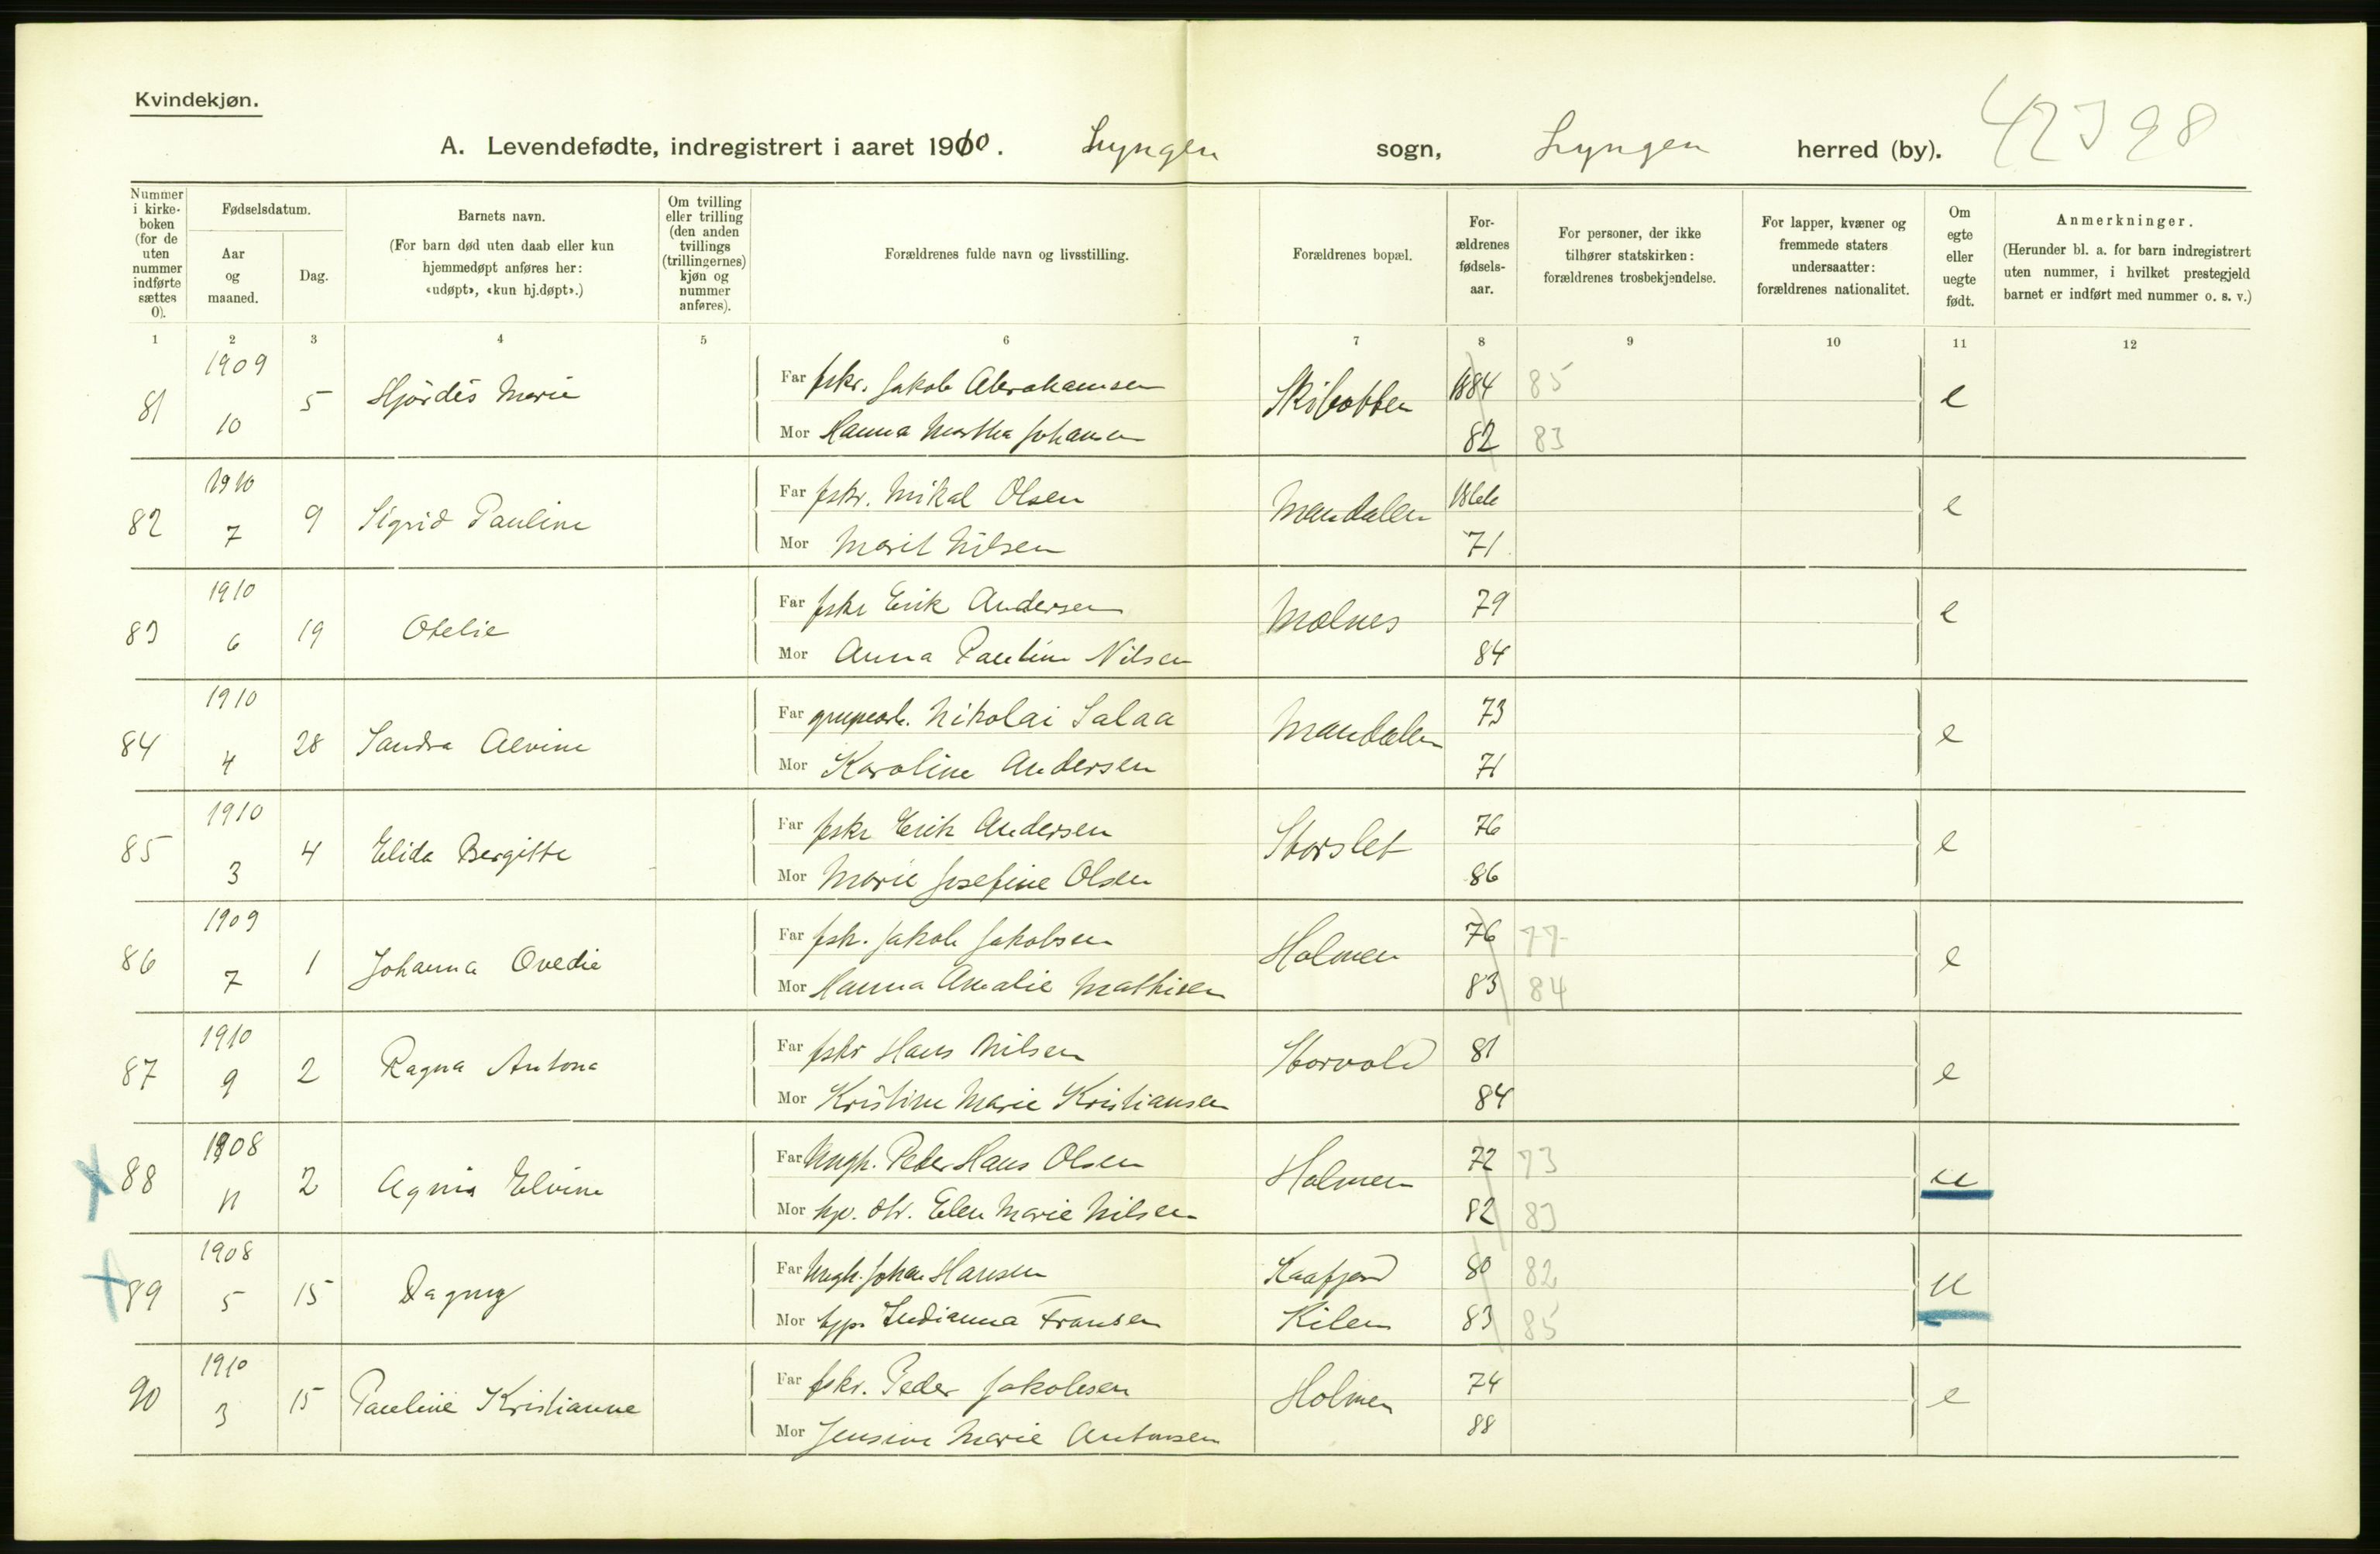 Kvindekjøn.
A. Levendefødte, indregistrert i aaret 1910. Lyngen sogn, Lyngen herred (by). 42398
Nummer i kirke-boken (for de uten nummer indførte sættes 0).
Fødselsdatum.
Aar og maaned.
Dag.
Barnets navn.
(For barn død uten daab eller kun hjemmedøpt anføres her: «udøpt», «kun hj.døpt».)
Om tvilling eller trilling (den anden tvillings (trillingernes) kjøn og nummer anføres).
Forældrenes fulde navn og livsstilling.
Forældrenes bopæl.
For-ældrenes fødsels-aar.
For personer, der ikke tilhører statskirken: forældrenes trosbekjendelse.
For lapper, kvæner og fremmede staters undersaatter: forældrenes nationalitet.
Om egte eller uegte født.
Anmerkninger.
(Herunder bl. a. for barn indregistrert uten nummer, i hvilket prestegjeld barnet er indført med nummer o. s. v.)
1 2 3 4 5 6 7 8 9 10 11 12
81 1909 10 5 Hjørdis Marie Far fskr. Jakob Abrahamsen Skibotten 1884 85 e
Mor Hanna Martha Johansen 82 83
82 1910 7 9 Sigrid Pauline Far fskr. Mikal Olsen Mandalen 1866 e
Mor Marit Nilsen 71
83 1910 6 19 Otelie Far fskr Erik Andersen Molnes 79 e
Mor Anna Pauline Nilsen 84
84 1910 4 28 Sandra Alvine Far grupearb. Nikolai Salaa Mandalen 73 e
Mor Karoline Andersen 71
85 1910 3 4 Elida Bergitte Far fskr Erik Andersen Storslet 76 e
Mor Marie Josefine Olsen 86
86 1909 7 1 Johanna Ovedie Far fsk. Jakob Jakobsen Holmen 76 77 e
Mor Hanna Amalie Mathisen 83 84
87 1910 9 2 Ragna Antona Far fskr Hans Nilsen Storvold 81 e
Mor Kristine Marie Kristiansen 84
88 1908 11 2 Agnis Elvine Far Ungk. Peder Hans Olsen Holmen 72 73 u
Mor Elen Marie Nilsen 82 83
89 1908 5 15 Dagny Far Ungk. Johan Hansen Kaafjord 80 82 u
Mor Indianna Fransen Kilen 83 85
90 1910 3 15 Pauline Kristianne Far fskr. Peder Jakobsen Holmen 74 e
Mor Jensine Marie Antonsen 88